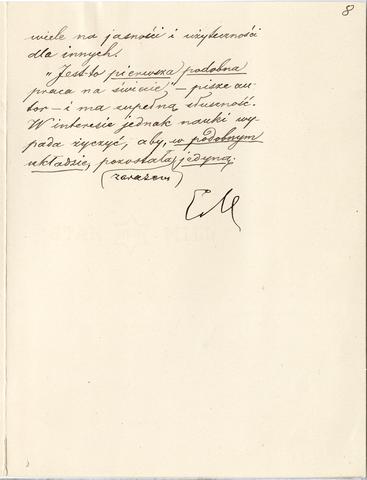 8
wiele na jasności i użyteczności
dla innych.
„Jest to pierwsza podobna
praca na świecie," – pisze au-
tor – i ma zupełną słuszność.
W interesie jednak nauki wy-
pada życzyć, aby, w podobnym
układzie, pozostała jedyną.
(zarazem)
EM